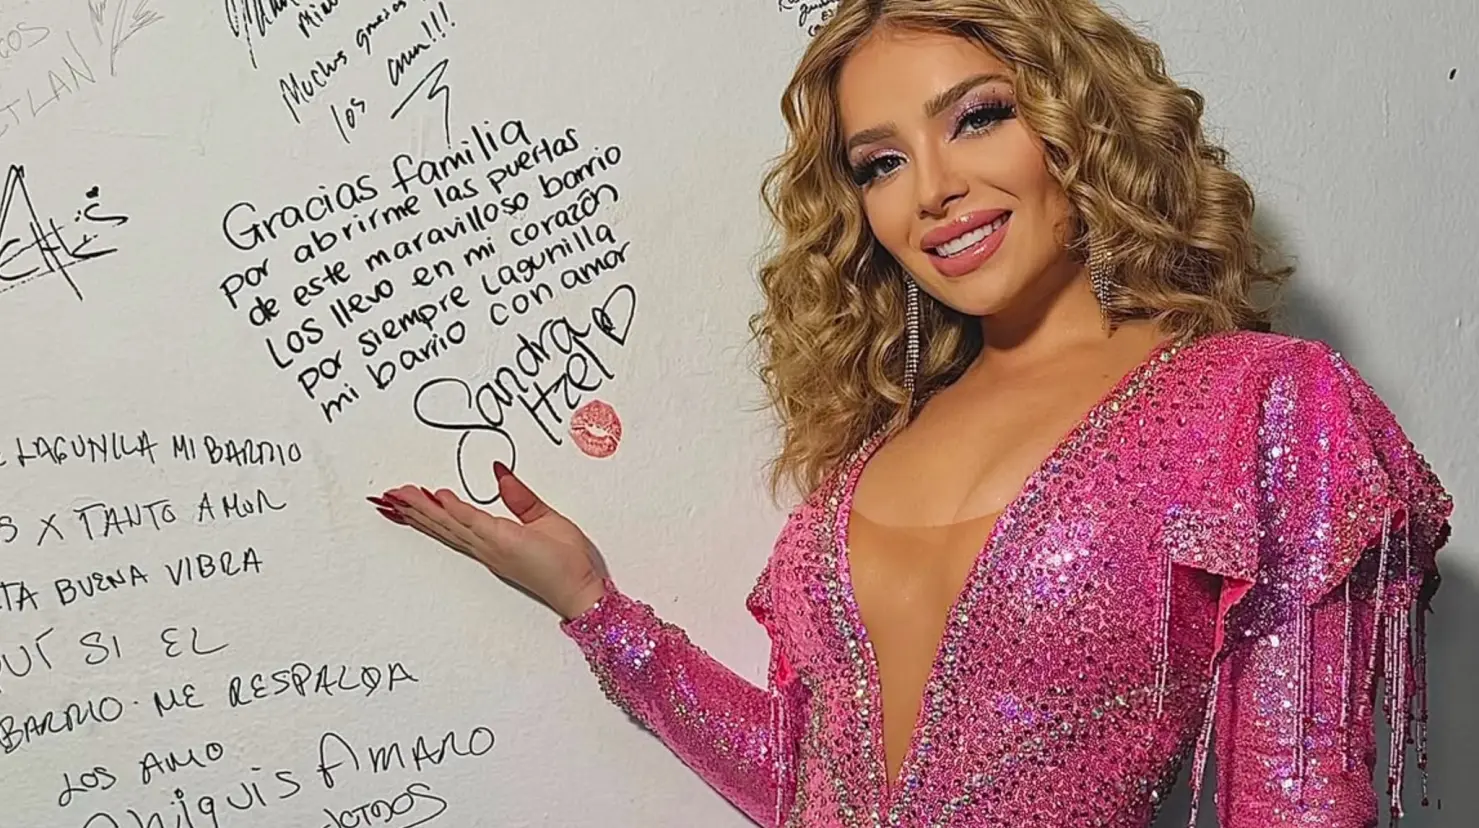 Muchas gracias
los amo!!!
Gracias familia
por abrirme las puertas
de este maravilloso barrio
Los llevo en mi corazón
por siempre Lagunilla
mi barrio con amor
Sandra
Itzel
LAGUNILLA MI BARRIO
X TANTO AMOR
BUENA VIBRA
SI EL
BARRIO ME RESPALDA
LOS AMO
Chiquis AMARO